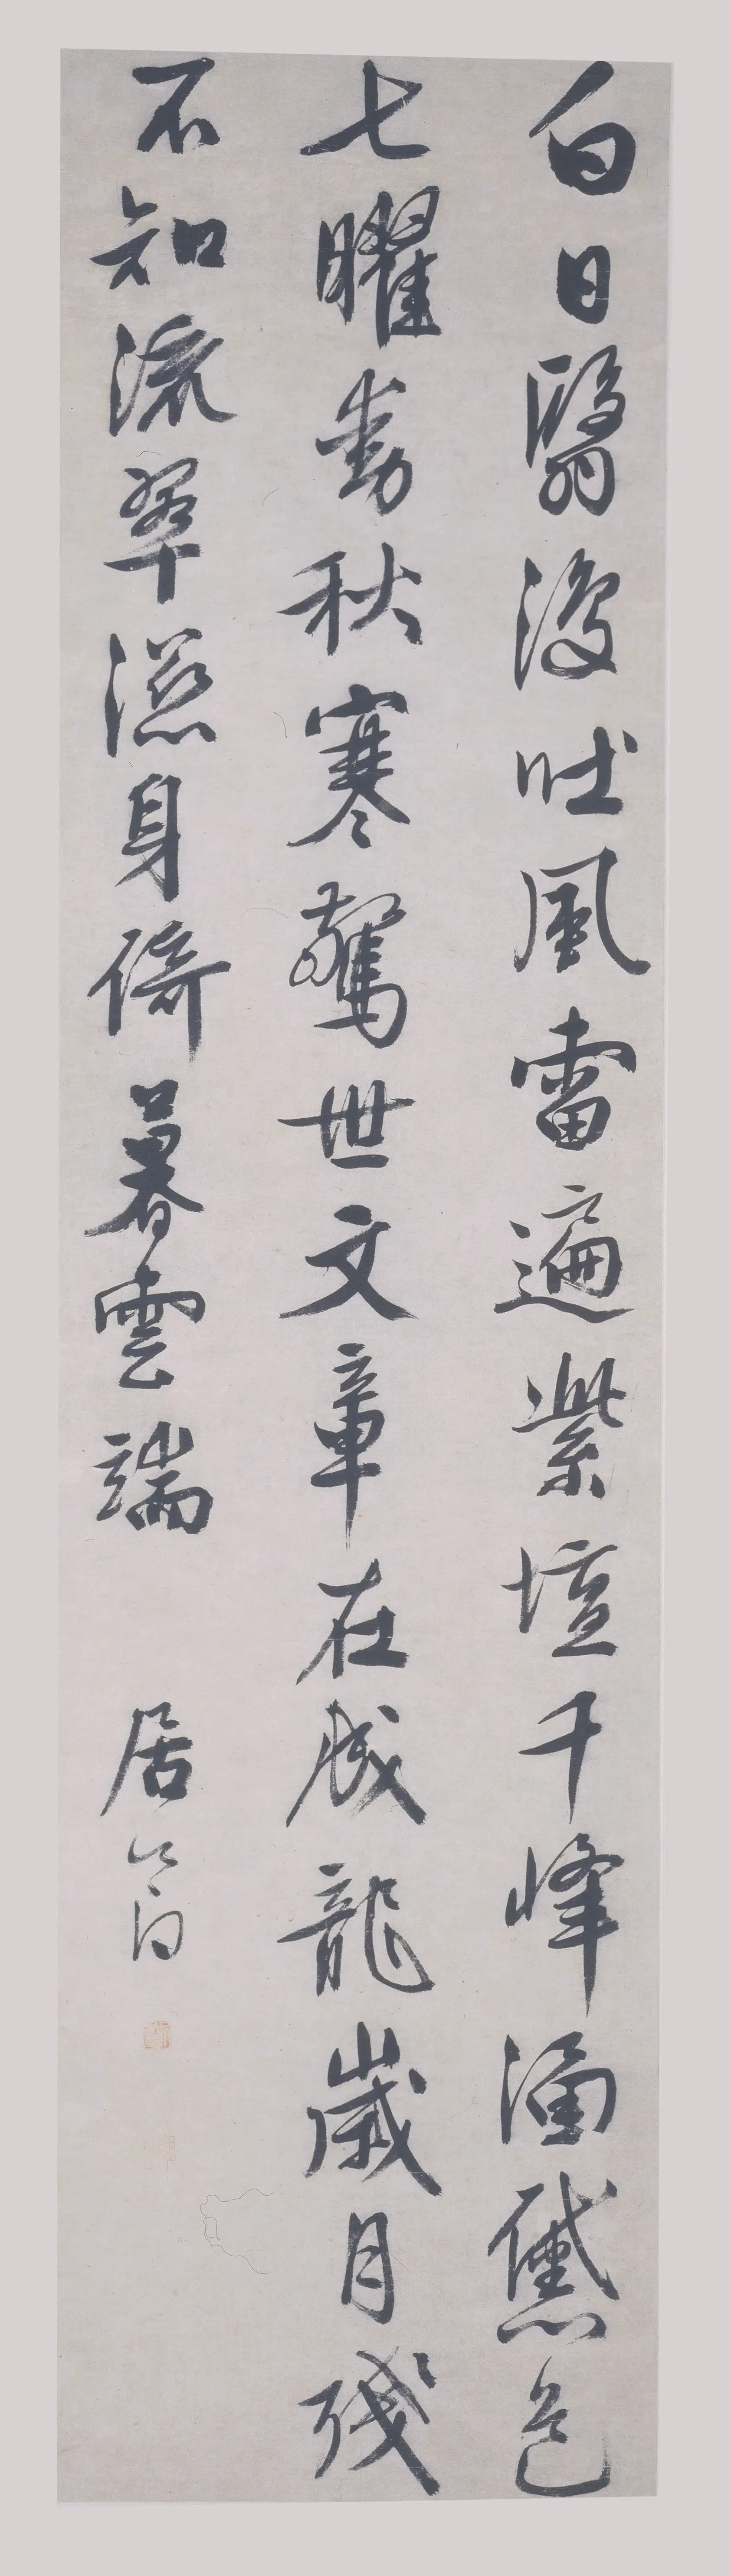 白日翳復吐風雷遍紫壇千峰涌黛色
七曜動秋寒驚世文章在成龍歲月殘
不知流翠濕身倚暮雲端 居